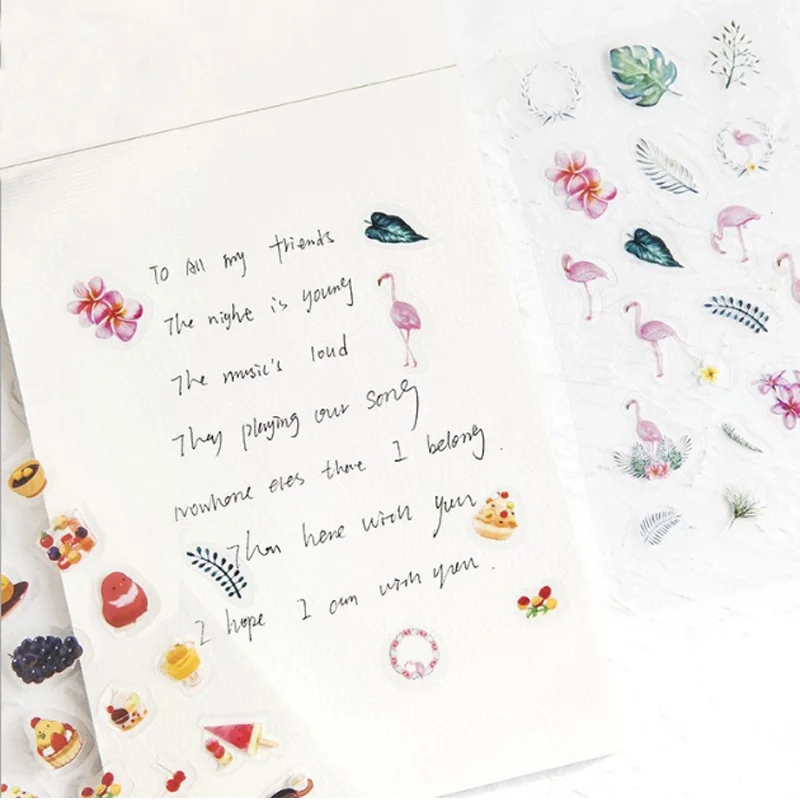 To All my friends
The night is young
The music's loud
They playing our song
Nowhere eles there I belong.
Than here with you
I hope I am with you.